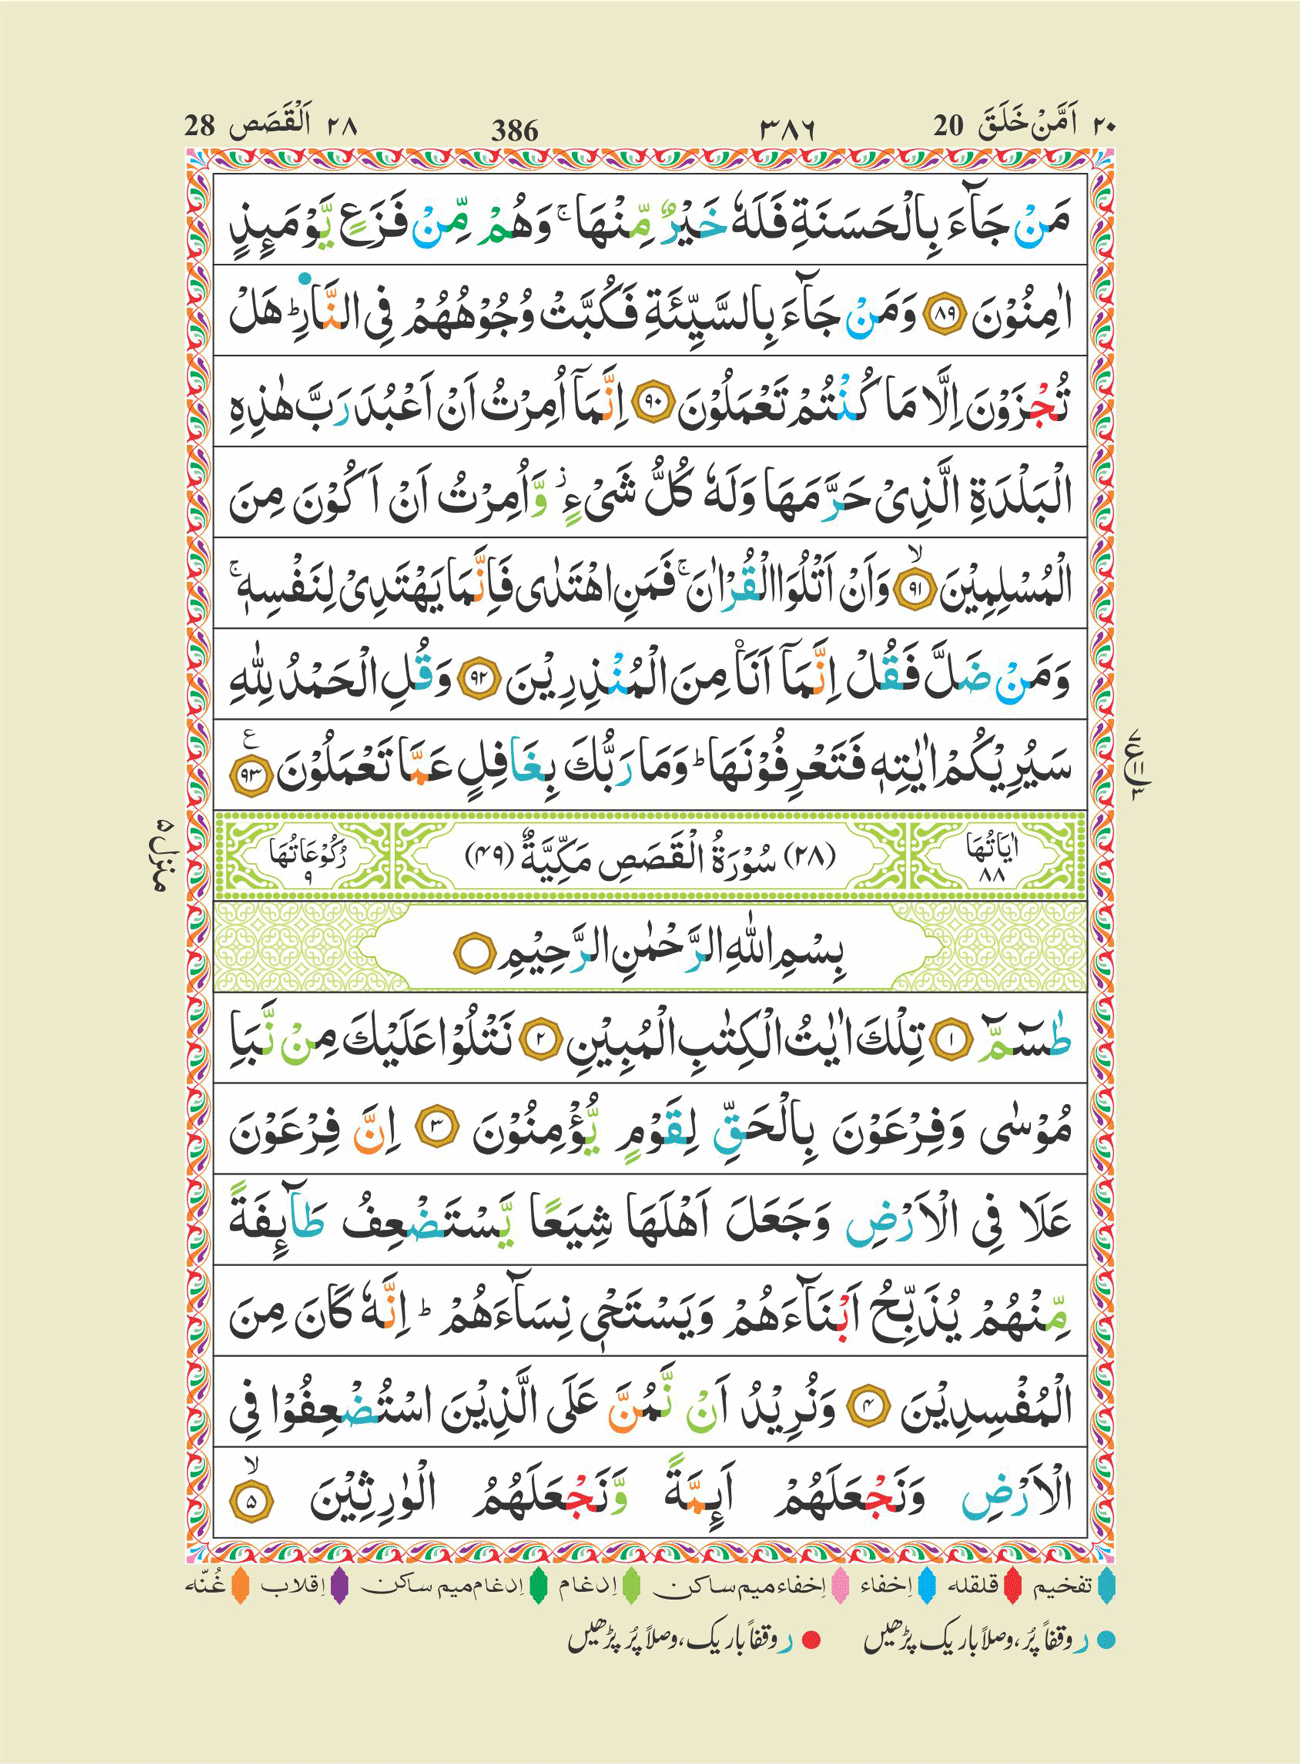 ٢٠ اَمَّنْ خَلَقَ 20 ٣٨٦ 386 ٢٨ اَلْقَصَص 28
مَنْ جَآءَ بِالْحَسَنَةِ فَلَهٗ خَيْرٌ مِّنْهَا ۚ وَهُمْ مِّنْ فَزَعٍ يَّوْمَىِٕذٍ
اٰمِنُوْنَ ﴿٨٩﴾ وَمَنْ جَآءَ بِالسَّيِّئَةِ فَكُبَّتْ وُجُوْهُهُمْ فِى النَّارِ ؕ هَلْ
تُجْزَوْنَ اِلَّا مَا كُنْتُمْ تَعْمَلُوْنَ ﴿٩٠﴾ اِنَّمَآ اُمِرْتُ اَنْ اَعْبُدَ رَبَّ هٰذِهِ
الْبَلْدَةِ الَّذِىْ حَرَّمَهَا وَلَهٗ كُلُّ شَىْءٍ ۫ وَّاُمِرْتُ اَنْ اَكُوْنَ مِنَ
الْمُسْلِمِيْنَ ۙ﴿٩١﴾ وَاَنْ اَتْلُوَا الْقُرْاٰنَ ۚ فَمَنِ اهْتَدٰى فَاِنَّمَا يَهْتَدِىْ لِنَفْسِهٖ ۚ
وَمَنْ ضَلَّ فَقُلْ اِنَّمَآ اَنَا۟ مِنَ الْمُنْذِرِيْنَ ﴿٩٢﴾ وَقُلِ الْحَمْدُ لِلّٰهِ
سَيُرِيْكُمْ اٰيٰتِهٖ فَتَعْرِفُوْنَهَا ؕ وَمَا رَبُّكَ بِغَافِلٍ عَمَّا تَعْمَلُوْنَ ﴿٩٣﴾ ع
٧
ع ١١
٣
منزل ۵
اٰيَاتُهَا ٨٨ (٢٨) سُوْرَةُ الْقَصَصِ مَكِّيَّةٌ (٤٩) رُكُوْعَاتُهَا ٩
بِسْمِ اللّٰهِ الرَّحْمٰنِ الرَّحِيْمِ
طٰسٓمّٓ ﴿١﴾ تِلْكَ اٰيٰتُ الْكِتٰبِ الْمُبِيْنِ ﴿٢﴾ نَتْلُوْا عَلَيْكَ مِنْ نَّبَاِ
مُوْسٰى وَفِرْعَوْنَ بِالْحَقِّ لِقَوْمٍ يُّؤْمِنُوْنَ ﴿٣﴾ اِنَّ فِرْعَوْنَ
عَلَا فِى الْاَرْضِ وَجَعَلَ اَهْلَهَا شِيَعًا يَّسْتَضْعِفُ طَآىِٕفَةً
مِّنْهُمْ يُذَبِّحُ اَبْنَآءَهُمْ وَيَسْتَحْىٖ نِسَآءَهُمْ ؕ اِنَّهٗ كَانَ مِنَ
الْمُفْسِدِيْنَ ﴿٤﴾ وَنُرِيْدُ اَنْ نَّمُنَّ عَلَى الَّذِيْنَ اسْتُضْعِفُوْا فِى
الْاَرْضِ وَنَجْعَلَهُمْ اَىِٕمَّةً وَّنَجْعَلَهُمُ الْوٰرِثِيْنَ ۙ﴿٥﴾
تفخیم قلقله اِخفاء اِخفاء میم ساکن اِدغام اِدغام میم ساکن اِقلاب غُنّه
ر وقفاً پُر، وصلاً باریک پڑھیں ر وقفاً باریک، وصلاً پُر پڑھیں